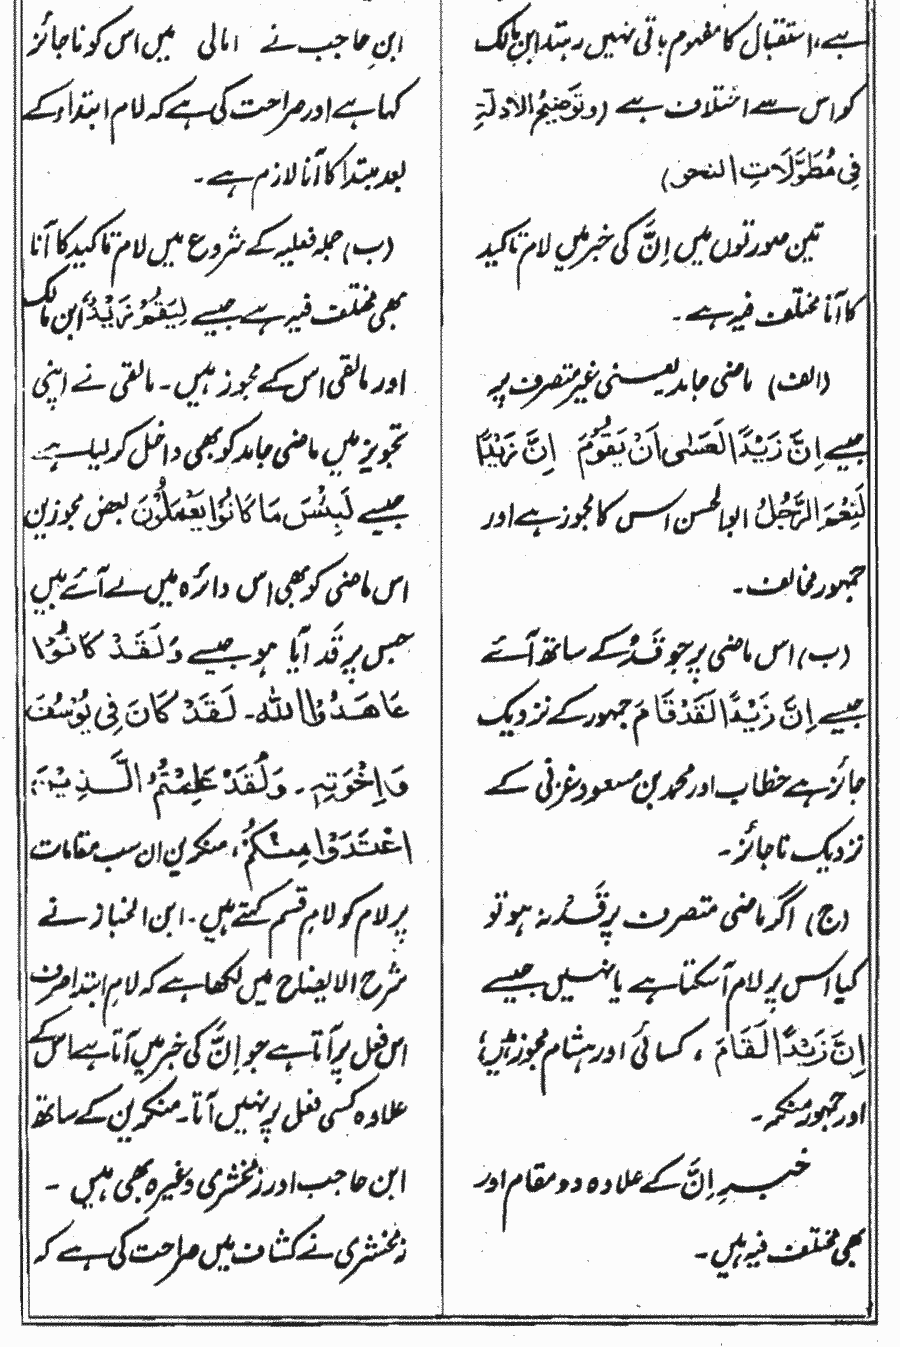 ہے، استقبال کا مفہوم باقی نہیں رہتا ابن مالک
کو اس سے اختلاف ہے (وتَوضِیحُ الاَدِلَّۃِ
فِی مُطَوَّلَاتِ النحو)
تین صورتوں میں اِنَّ کی خبر میں لام تاکید
کا آنا مختلف فیہ ہے۔
(الف) ماضی جامد یعنی غیر متصرف پر
جیسے اِنَّ زَیْدًا لَعَسٰی اَنْ یَقُوْمَ اِنَّ زَیْدًا
لَنِعْمَ الرَّجُلُ ابوالحسن اس کا مجوز ہے اور
جمہور مخالف۔
(ب) اس ماضی پر جو قَدْ کے ساتھ آئے
جیسے اِنَّ زَیْدًا لَقَدْ قَامَ جمہور کے نزدیک
جائز ہے خطاب اور محمد بن مسعود غزنی کے
نزدیک ناجائز۔
(ج) اگر ماضی متصرف پر قَدْ نہ ہو تو
کیا اس پر لام آسکتا ہے یا نہیں جیسے
اِنَّ زَیْدًا لَقَامَ، کسائی اور ہشام مجوز ہیں؛
اور جمہور منکر۔
خبرِ اِنَّ کے علاوہ دو مقام اور
بھی مختلف فیہ ہیں۔
ابنِ حاجب نے امالی میں اس کو ناجائز
کہا ہے اور صراحت کی ہے کہ لام ابتداء کے
بعد مبتدا کا آنا لازم ہے۔
(ب) جملہ فعلیہ کے شروع میں لام تاکید کا آنا
بھی مختلف فیہ ہے جیسے لَیَقُوْمُ زَیْدٌ ابن مالک
اور مالقی اس کے مجوز ہیں۔ مالقی نے اپنی
تجویز میں ماضی جامد کو بھی داخل کرلیا ہے
جیسے لَبِئْسَ مَا کَانُوْا یَعْمَلُوْنَ بعض مجوزین
اس ماضی کو بھی اس دائرہ میں لے آئے ہیں
جس پر قَد آیا ہو جیسے وَلَقَدْ کَانُوْا
عَاهَدُوْا اللہ۔ لَقَدْ کَانَ فِی یُوْسُفَ
وَاِخْوَتِہٖ۔ وَلَقَدْ عَلِمْتُمُ الَّذِیْنَ
اعْتَدَوْا مِنْکُمْ، منکرین ان سب مقامات
پر لام کو لامِ قسم کہتے ہیں۔ ابن الخباز نے
شرح الایضاح میں لکھا ہے کہ لامِ ابتدا صرف
اس فعل پر آتا ہے جو اِنَّ کی خبر میں آتا ہے اس کے
علاوہ کسی فعل پر نہیں آتا۔ منکرین کے ساتھ
ابن حاجب اور زمخشری وغیرہ بھی ہیں۔
زمخشری نے کشاف میں صراحت کی ہے کہ